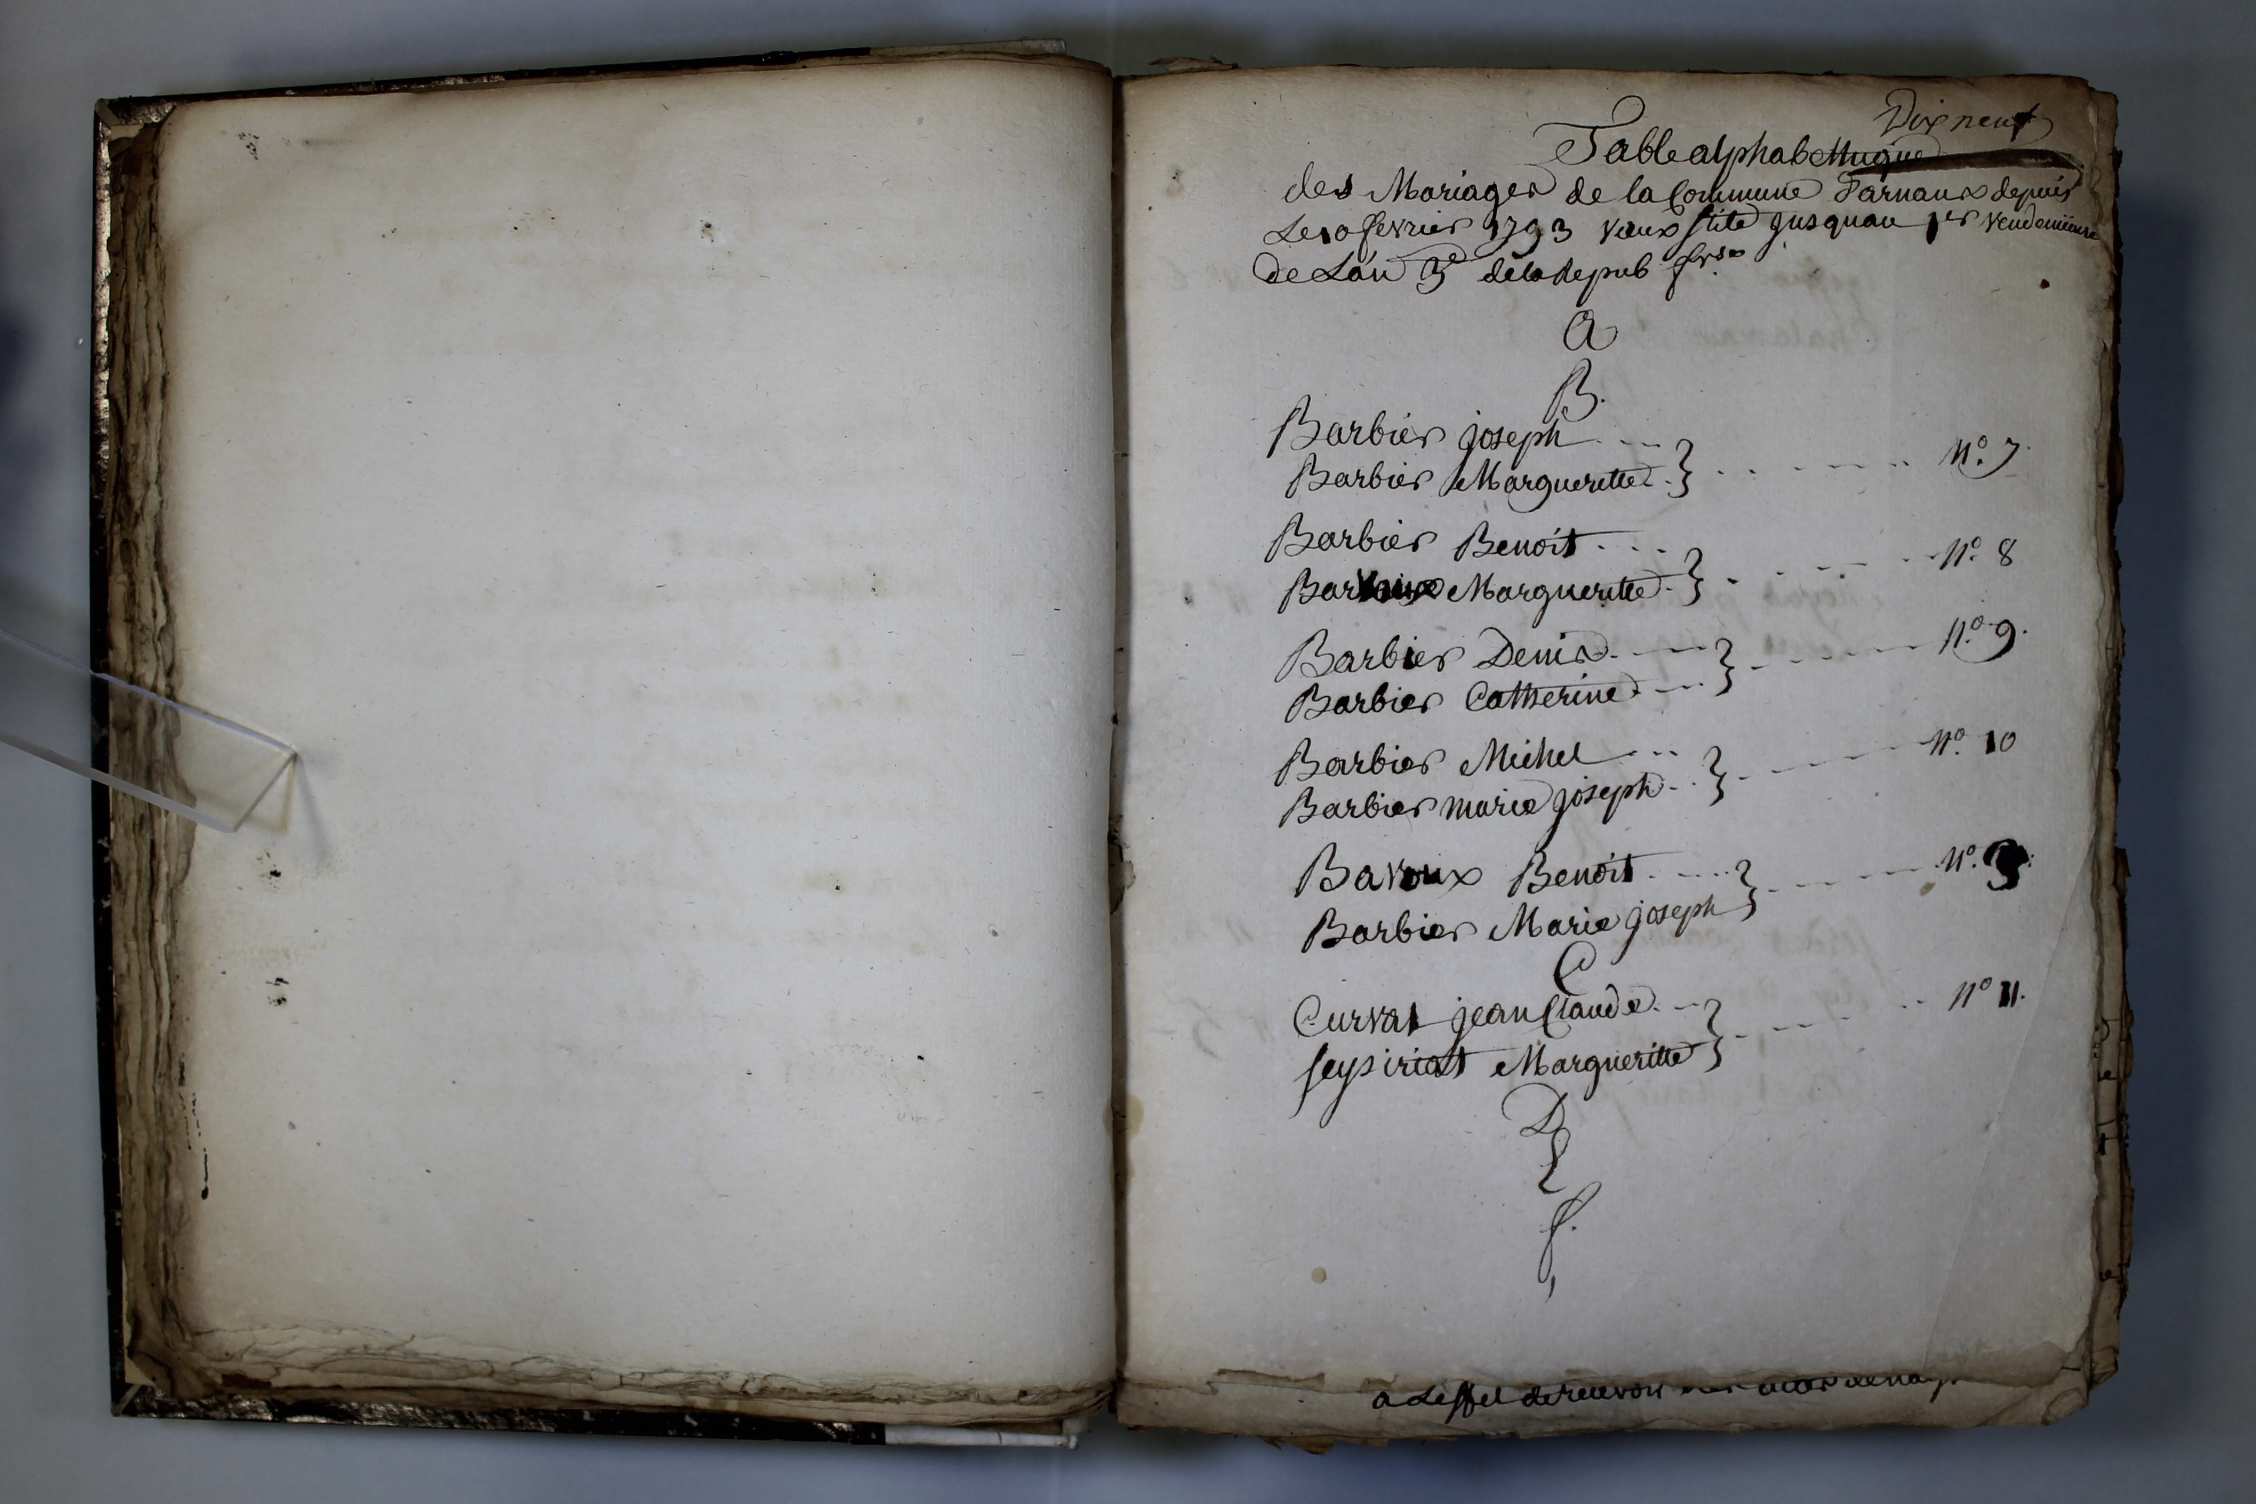 Dix neuf
Table alphabettuque
des Mariages de la Commune Darnaux depuis
Le 10 fevrier 1793 vieux stile jusquau 1er vendemiaire
de Lan 3e de la Repub frse
A
B.
Barbier joseph
Barbier Margueritte } N.o 7
Barbier Benoit
Margueritte } N.o 8
Barbier Denis
Barbier Catherine } N.o 9.
Barbier Michel
Barbier marie joseph } N.o 10
Bavoux Benoit
Barbier Marie joseph } N.o
C
Curvat jean Claude
feysiriat Margueritte } N.o 11.
D
E
f.
a Leffet de recevoir